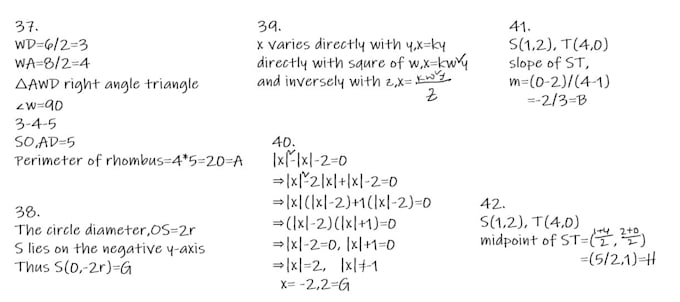 37.
WD=6/2=3
WA=8/2=4
△AWD right angle triangle
∠W=90
3-4-5
SO,AD=5
Perimeter of rhombus=4*5=20=A
38.
The circle diameter,OS=2r
S lies on the negative y-axis
Thus S(0,-2r)=G
39.
x varies directly with y,x=ky
directly with squre of w,x=kw²y
and inversely with z,x=kw²y/z
40.
|x|²-|x|-2=0
⇒|x|²-2|x|+|x|-2=0
⇒|x|(|x|-2)+1(|x|-2)=0
⇒(|x|-2)(|x|+1)=0
⇒|x|-2=0, |x|+1=0
⇒|x|=2, |x|≠-1
x= -2,2=G
41.
S(1,2), T(4,0)
slope of ST,
m=(0-2)/(4-1)
=-2/3=B
42.
S(1,2), T(4,0)
midpoint of ST=(1+4/2, 2+0/2)
=(5/2,1)=H